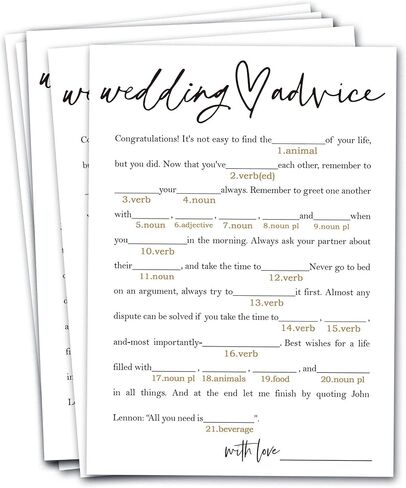 wedding advice
Congratulations! It's not easy to find the____________of your life,
1.animal
but you did. Now that you've____________each other, remember to
2.verb(ed)
__________your____________always. Remember to greet one another
3.verb 4.noun
with__________, ________, ________, ________and________when
5.noun 6.adjective 7.noun 8.noun pl 9.noun pl
you____________in the morning. Always ask your partner about
10.verb
their__________, and take the time to__________Never go to bed
11.noun 12.verb
on an argument, always try to____________it first. Almost any
13.verb
dispute can be solved if you take the time to________, ________,
14.verb 15.verb
and-most importantly-________________. Best wishes for a life
16.verb
filled with________, ________, ________, and____________
17.noun pl 18.animals 19.food 20.noun pl
in all things. And at the end let me finish by quoting John
Lennon: "All you need is__________".
21.beverage
with love____________________